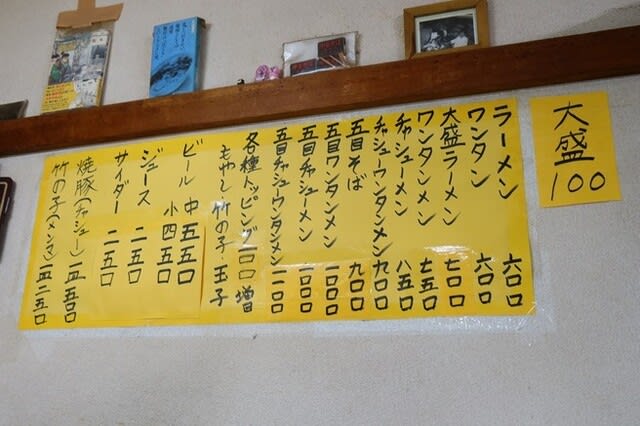 大盛
100
ラーメン 六〇〇
ワンタン 六〇〇
大盛ラーメン 七〇〇
ワンタンメン 七五〇
チャシューメン 八五〇
チャシュウンタンメン 九〇〇
五目そば 九〇〇
五目ワンタンメン 一〇〇〇
五目チャシューメン 一〇〇〇
五目チャシュウンタンメン 一一〇〇
各種トッピング 一〇〇増
もやし 竹の子・玉子
ビール 中 五五〇
小 四五〇
ジュース 二五〇
サイダー 二五〇
焼豚(チャシュー)
竹の子(メンマ)